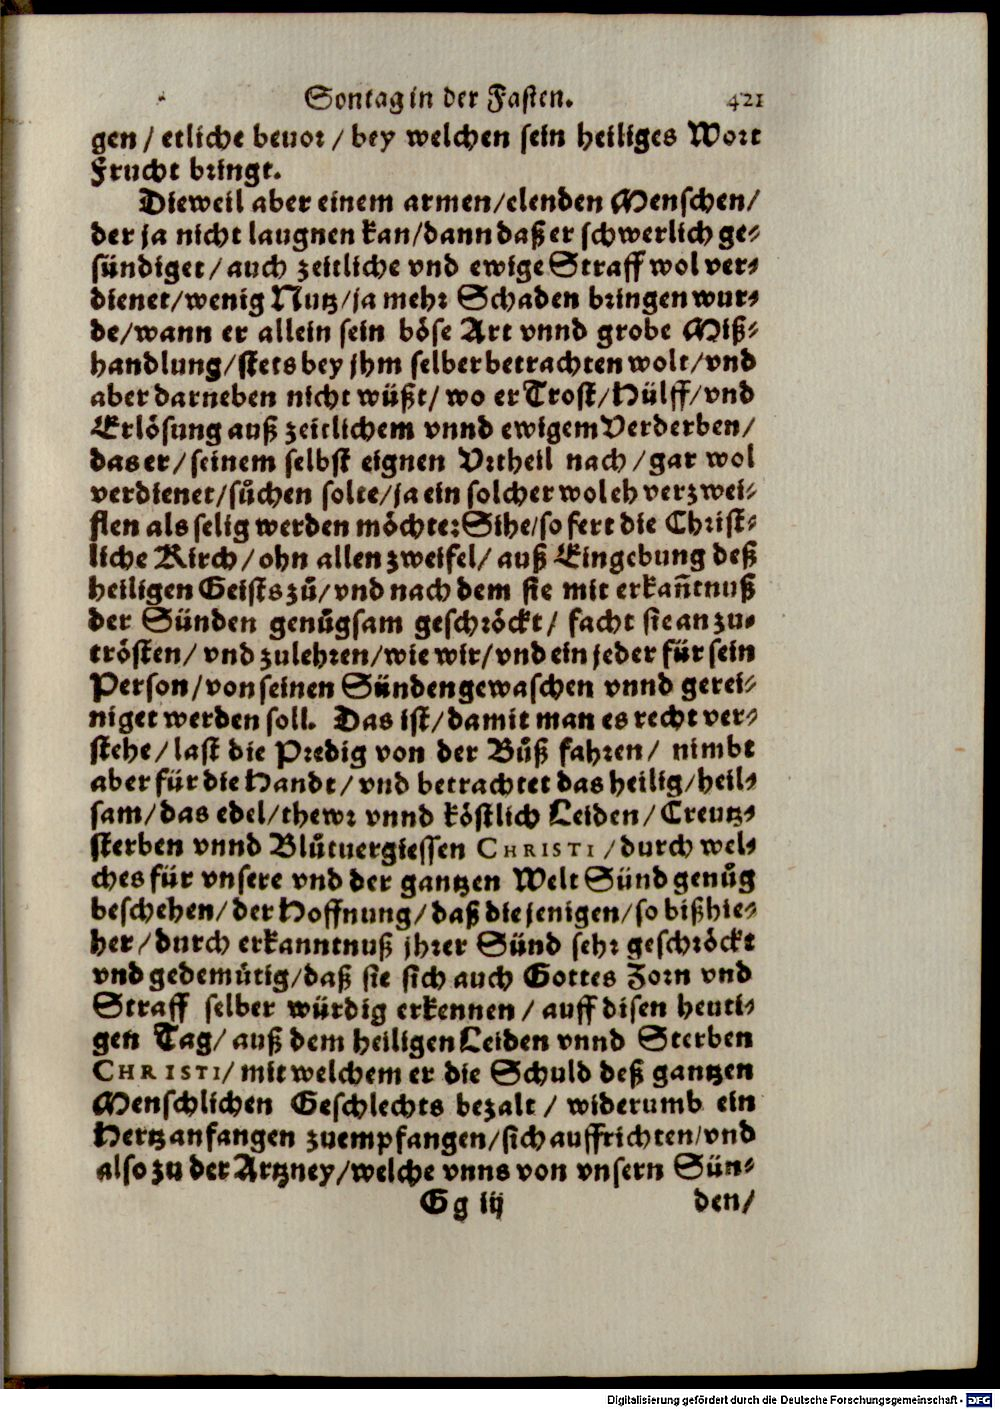 Sontag in der Fasten. 421
gen / etliche beuor / bey welchen sein heiliges Wort
Frucht bringt.
Dieweil aber einem armen/elenden Menschen/
der ja nicht laugnen kan/dann daß er schwerlich ge-
sündiget/auch zeitliche vnd ewige Straff wol ver-
dienet/wenig Nutz/ja mehr Schaden bringen wur-
de/wann er allein sein böse Art vnnd grobe Miß-
handlung/stets bey jhm selber betrachten wolt/vnd
aber darneben nicht wüßt/ wo er Trost/Hülff/vnd
Erlösung auß zeitlichem vnnd ewigem Verderben/
das er/seinem selbst eignen Vrtheil nach/gar wol
verdienet/sůchen solte/ja ein solcher wol eh verzwei-
flen als selig werden möchte: Sihe/so fert die Christ-
liche Kirch/ohn allen zweifel/ auß Eingebung deß
heiligen Geists zů/vnd nach dem sie mit erkañtnuß
der Sünden genůgsam geschröckt/ facht sie an zu-
trösten/ vnd zulehren/wie wir/vnd ein jeder für sein
Person/von seinen Sünden gewaschen vnnd gerei-
niget werden soll. Das ist/damit man es recht ver-
stehe/last die Predig von der Bůß fahren/ nimbt
aber für die Handt/vnd betrachtet das heilig/heil-
sam/das edel/thewr vnnd köstlich Leiden/Creutz-
sterben vnnd Blůtuergiessen CHRISTI/durch wel-
ches für vnsere vnd der gantzen Welt Sünd genůg
beschehen/der Hoffnung/daß die jenigen/so bißhie-
her/durch erkanntnuß jhrer Sünd sehr geschröckt
vnd gedemütig/daß sie sich auch Gottes Zorn vnd
Straff selber würdig erkennen / auff disen heuti-
gen Tag/ auß dem heiligen Leiden vnnd Sterben
CHRISTI/mit welchem er die Schuld deß gantzen
Menschlichen Geschlechts bezalt / widerumb ein
Hertz anfangen zuempfangen/sich auffrichten/vnd
also zu der Artzney/welche vnns von vnsern Sün-
Gg iij den/
Digitalisierung gefördert durch die Deutsche Forschungsgemeinschaft - DFG